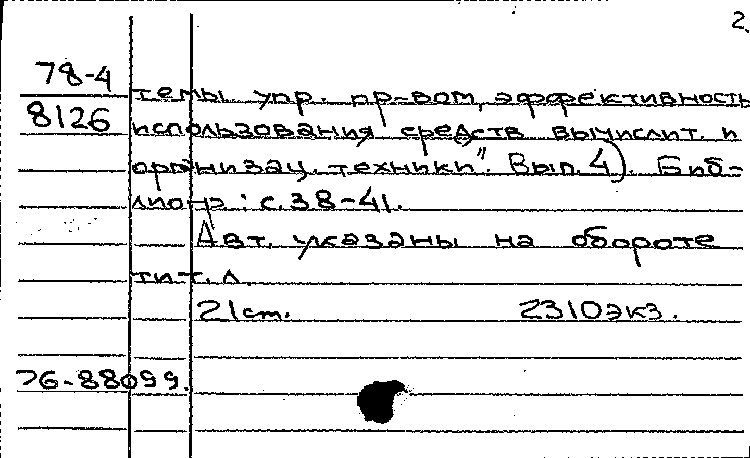 2.
78-4
8126
темы упр. пр-вом, эффективность
использования средств вычислит. и
организац. техники". Вып. 4). Биб-
лиогр: с. 38-41.
Авт. указаны на обороте
тит. л.
21cm. 2310экз.
76-88099.